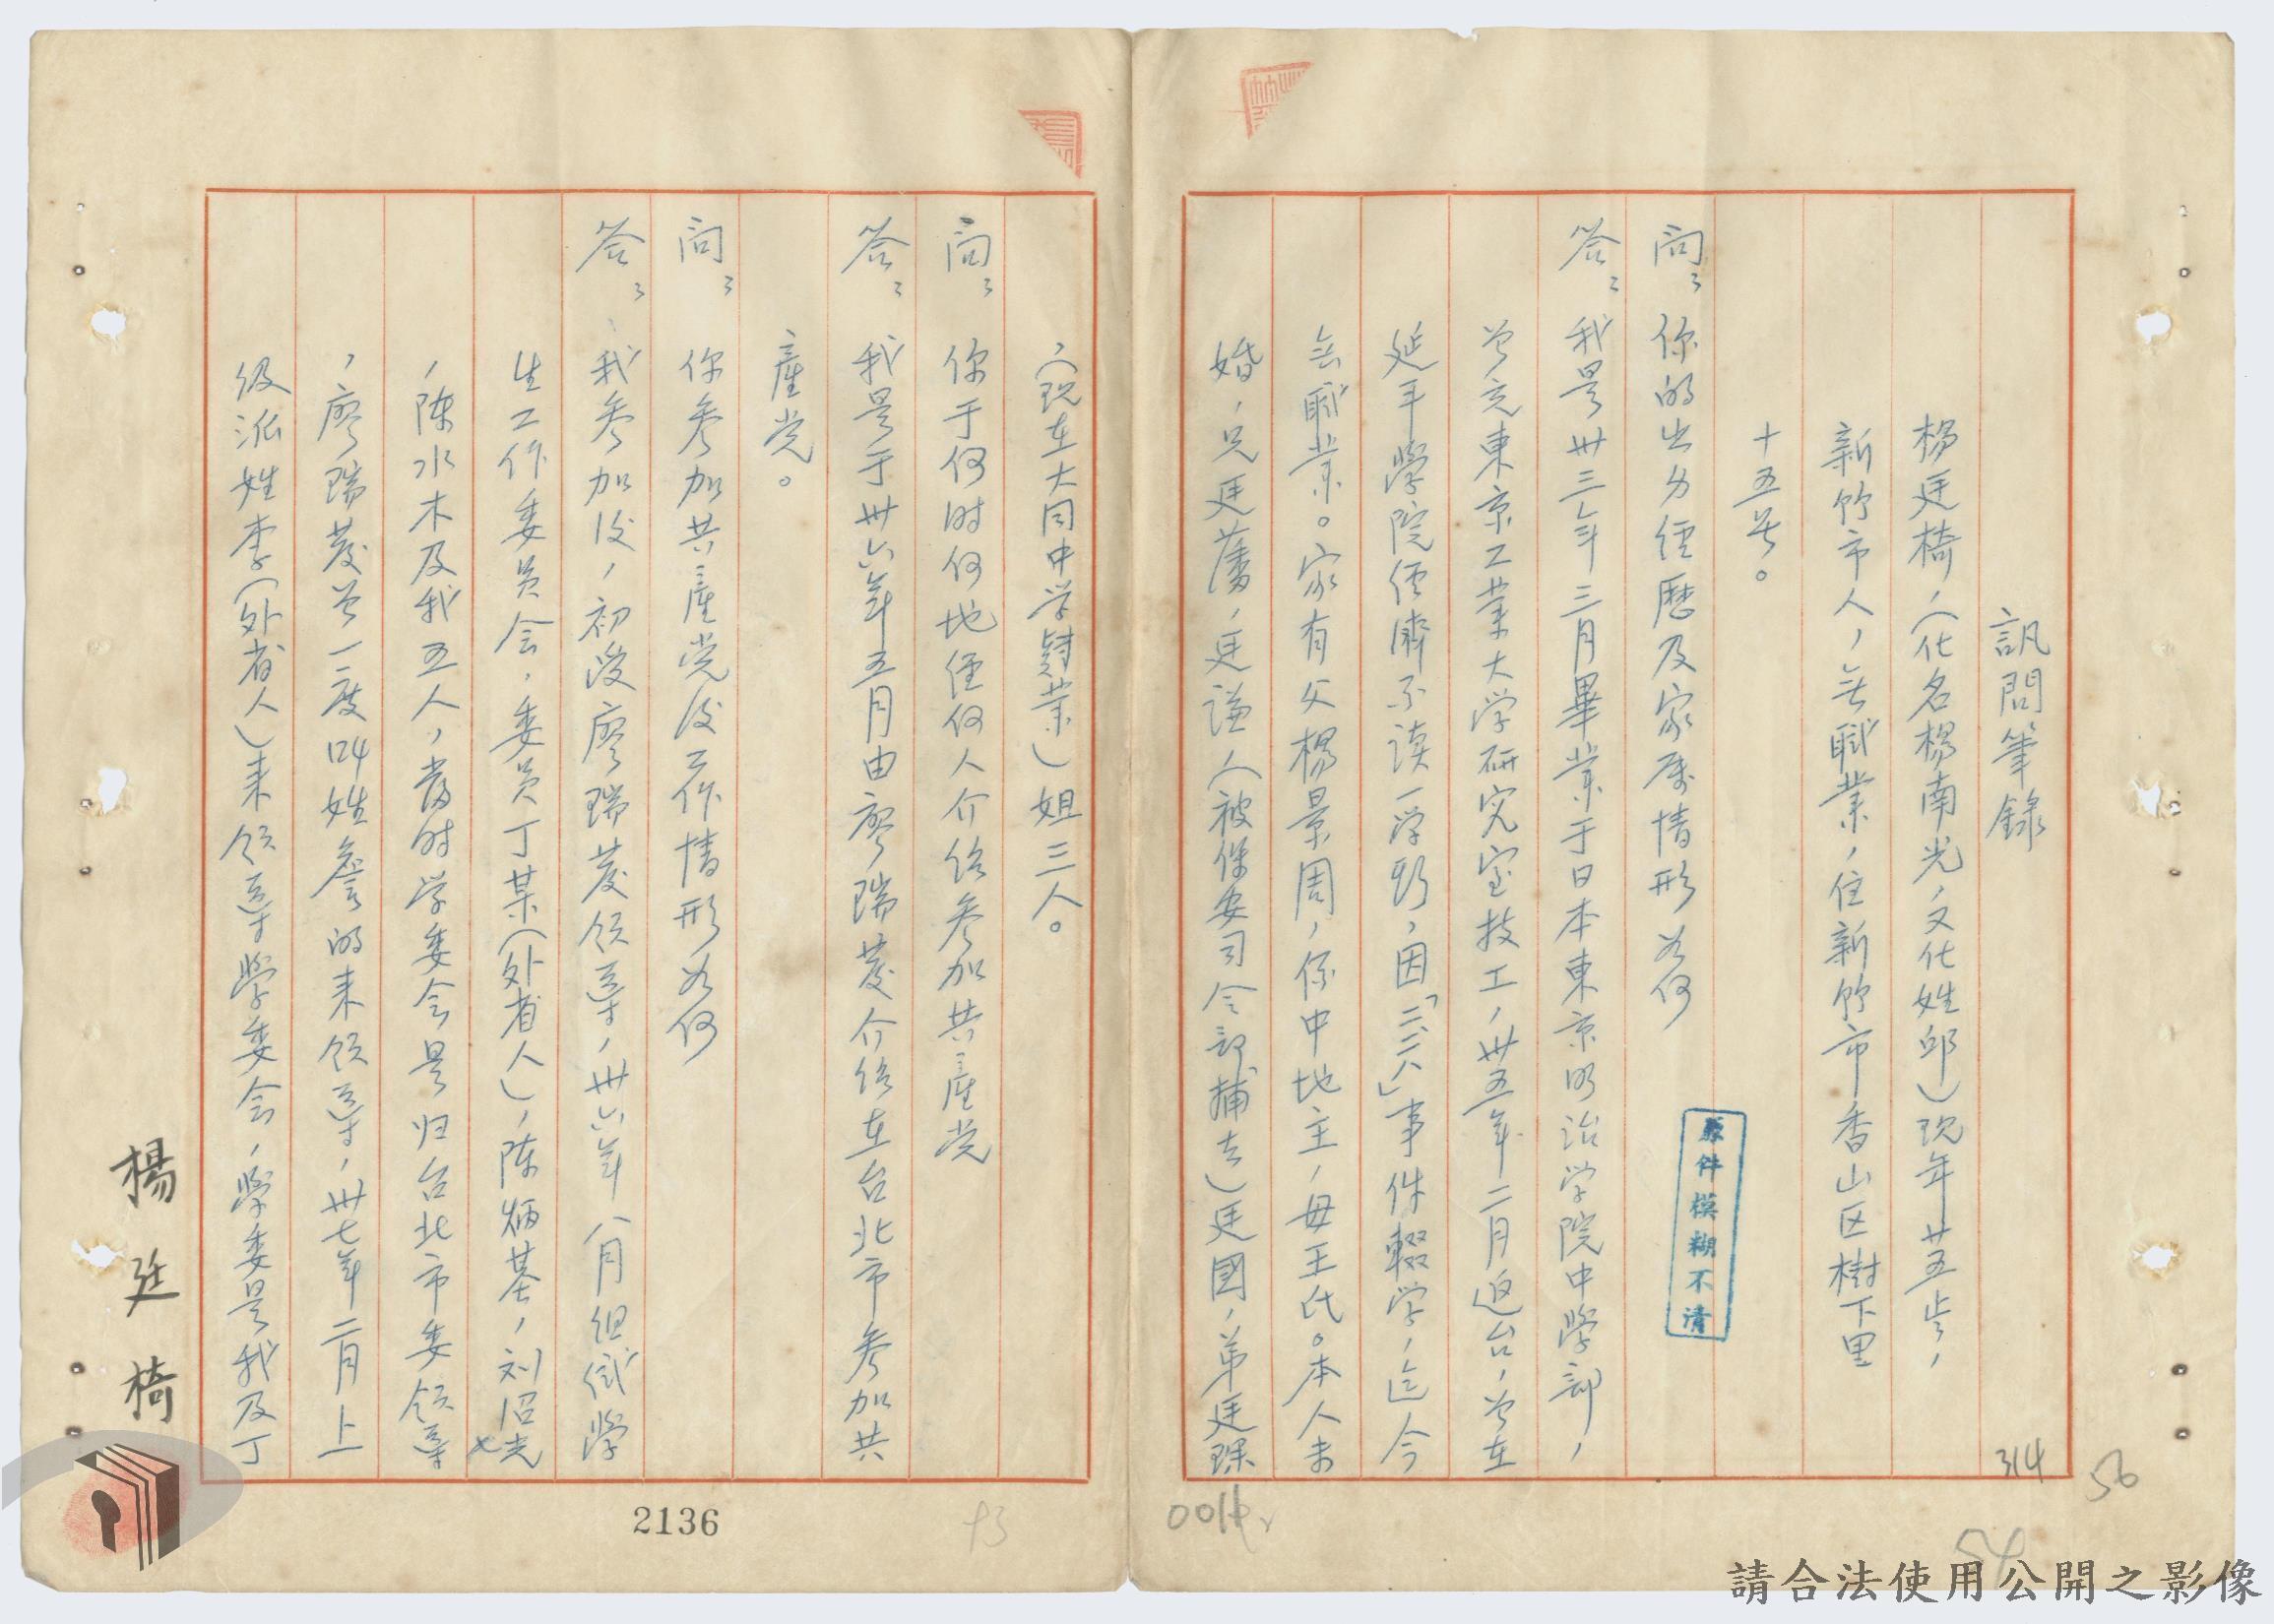 訊問筆錄
楊廷椅，（化名楊南光，又化姓邱）现年廿五岁，
新竹市人，無职業，住新竹市香山区樹下里
十五号。
问：你的出身经歷及家属情形为何
答：我是卅三年三月畢業于日本東京明治学院中學部，
曾充東京工業大学研究室技工，卅五年二月返台，曾在
延平學院经濟系读一学期，因「二二八」事件輟学，迄今
無职業。家有父楊景周，係中地主，母王氏。本人未
婚，兄廷藩，廷谦（被保安司令部捕去）廷國，弟廷琛
，（现在大同中学肄業）姐三人。
问：你于何时何地经何人介绍参加共產党
答：我是于卅六年五月由廖瑞发介绍在台北市参加共
產党。
问：你参加共產党后工作情形为何
答：我参加后，初受廖瑞发领导，卅六年八月组织學
生工作委员会，委员丁某（外省人），陈炳基，刘沼光
，陈水木及我五人，当时学委会是归台北市委领導
，廖瑞发曾一度叫姓詹的来领導，卅七年二月上
级派姓李（外省人）来领導學委会，學委是我及丁
楊廷椅
原件模糊不清
314
56
54
001
2136
93
請合法使用公開之影像